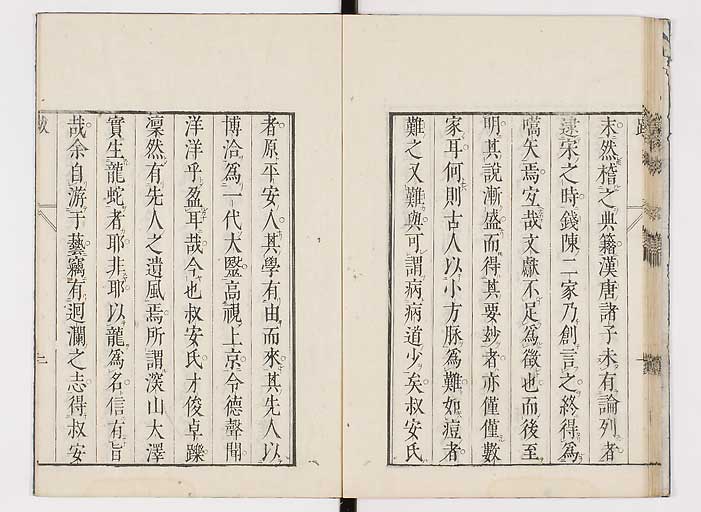 末然稽之典籍漢唐諸子未有論列者
逮宋之時錢陳二家乃創言之終得爲
嚆矢焉宐哉文獻不足爲徵也而後至
明其說漸盛而得其要玅者亦僅僅數
家耳何則古人以小方脉爲難如痘者
難之又難與可謂病病道少矣叔安氏
者原平安人其學有由而來其先人以
博洽爲一代大毉高視上京令德聲聞
洋洋乎盈耳哉今也叔安氏才俊卓躒
凜然有先人之遺風焉所謂深山大澤
實生龍蛇者耶非耶以龍爲名信有旨
哉余自游于藝竊有迴瀾之志得叔安
跋
二